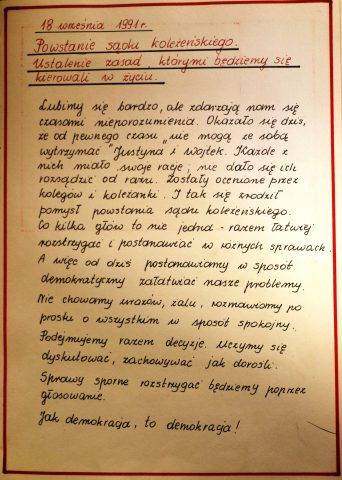 18 września 1991 r.
Powstanie sądu koleżeńskiego.
Ustalenie zasad którymi będziemy się
kierowali w życiu.
Lubimy się bardzo, ale zdarzają nam się
czasami nieporozumienia. Okazało się dziś,
że od pewnego czasu "nie mogą ze sobą
wytrzymać" Justyna i Wojtek. Każde z
nich miało swoje racje, nie dało się ich
rozsądzić od razu. Zostały ocenione przez
kolegów i koleżanki. I tak się zrodził
pomysł powstania sądu koleżeńskiego.
Co kilka głów to nie jedna - razem łatwiej
rozstrzygać i postanawiać w różnych sprawach.
A więc od dziś postanowiamy w sposób
demokratyczny załatwiać nasze problemy.
Nie chowamy urazów, żalu, rozmawiamy po
prostu o wszystkim w sposób spokojny.
Podejmujemy razem decyzje. Uczymy się
dyskutować, zachowywać jak dorośli.
Sprawy sporne rozstrzygać będziemy poprzez
głosowanie.
Jak demokracja, to demokracja!